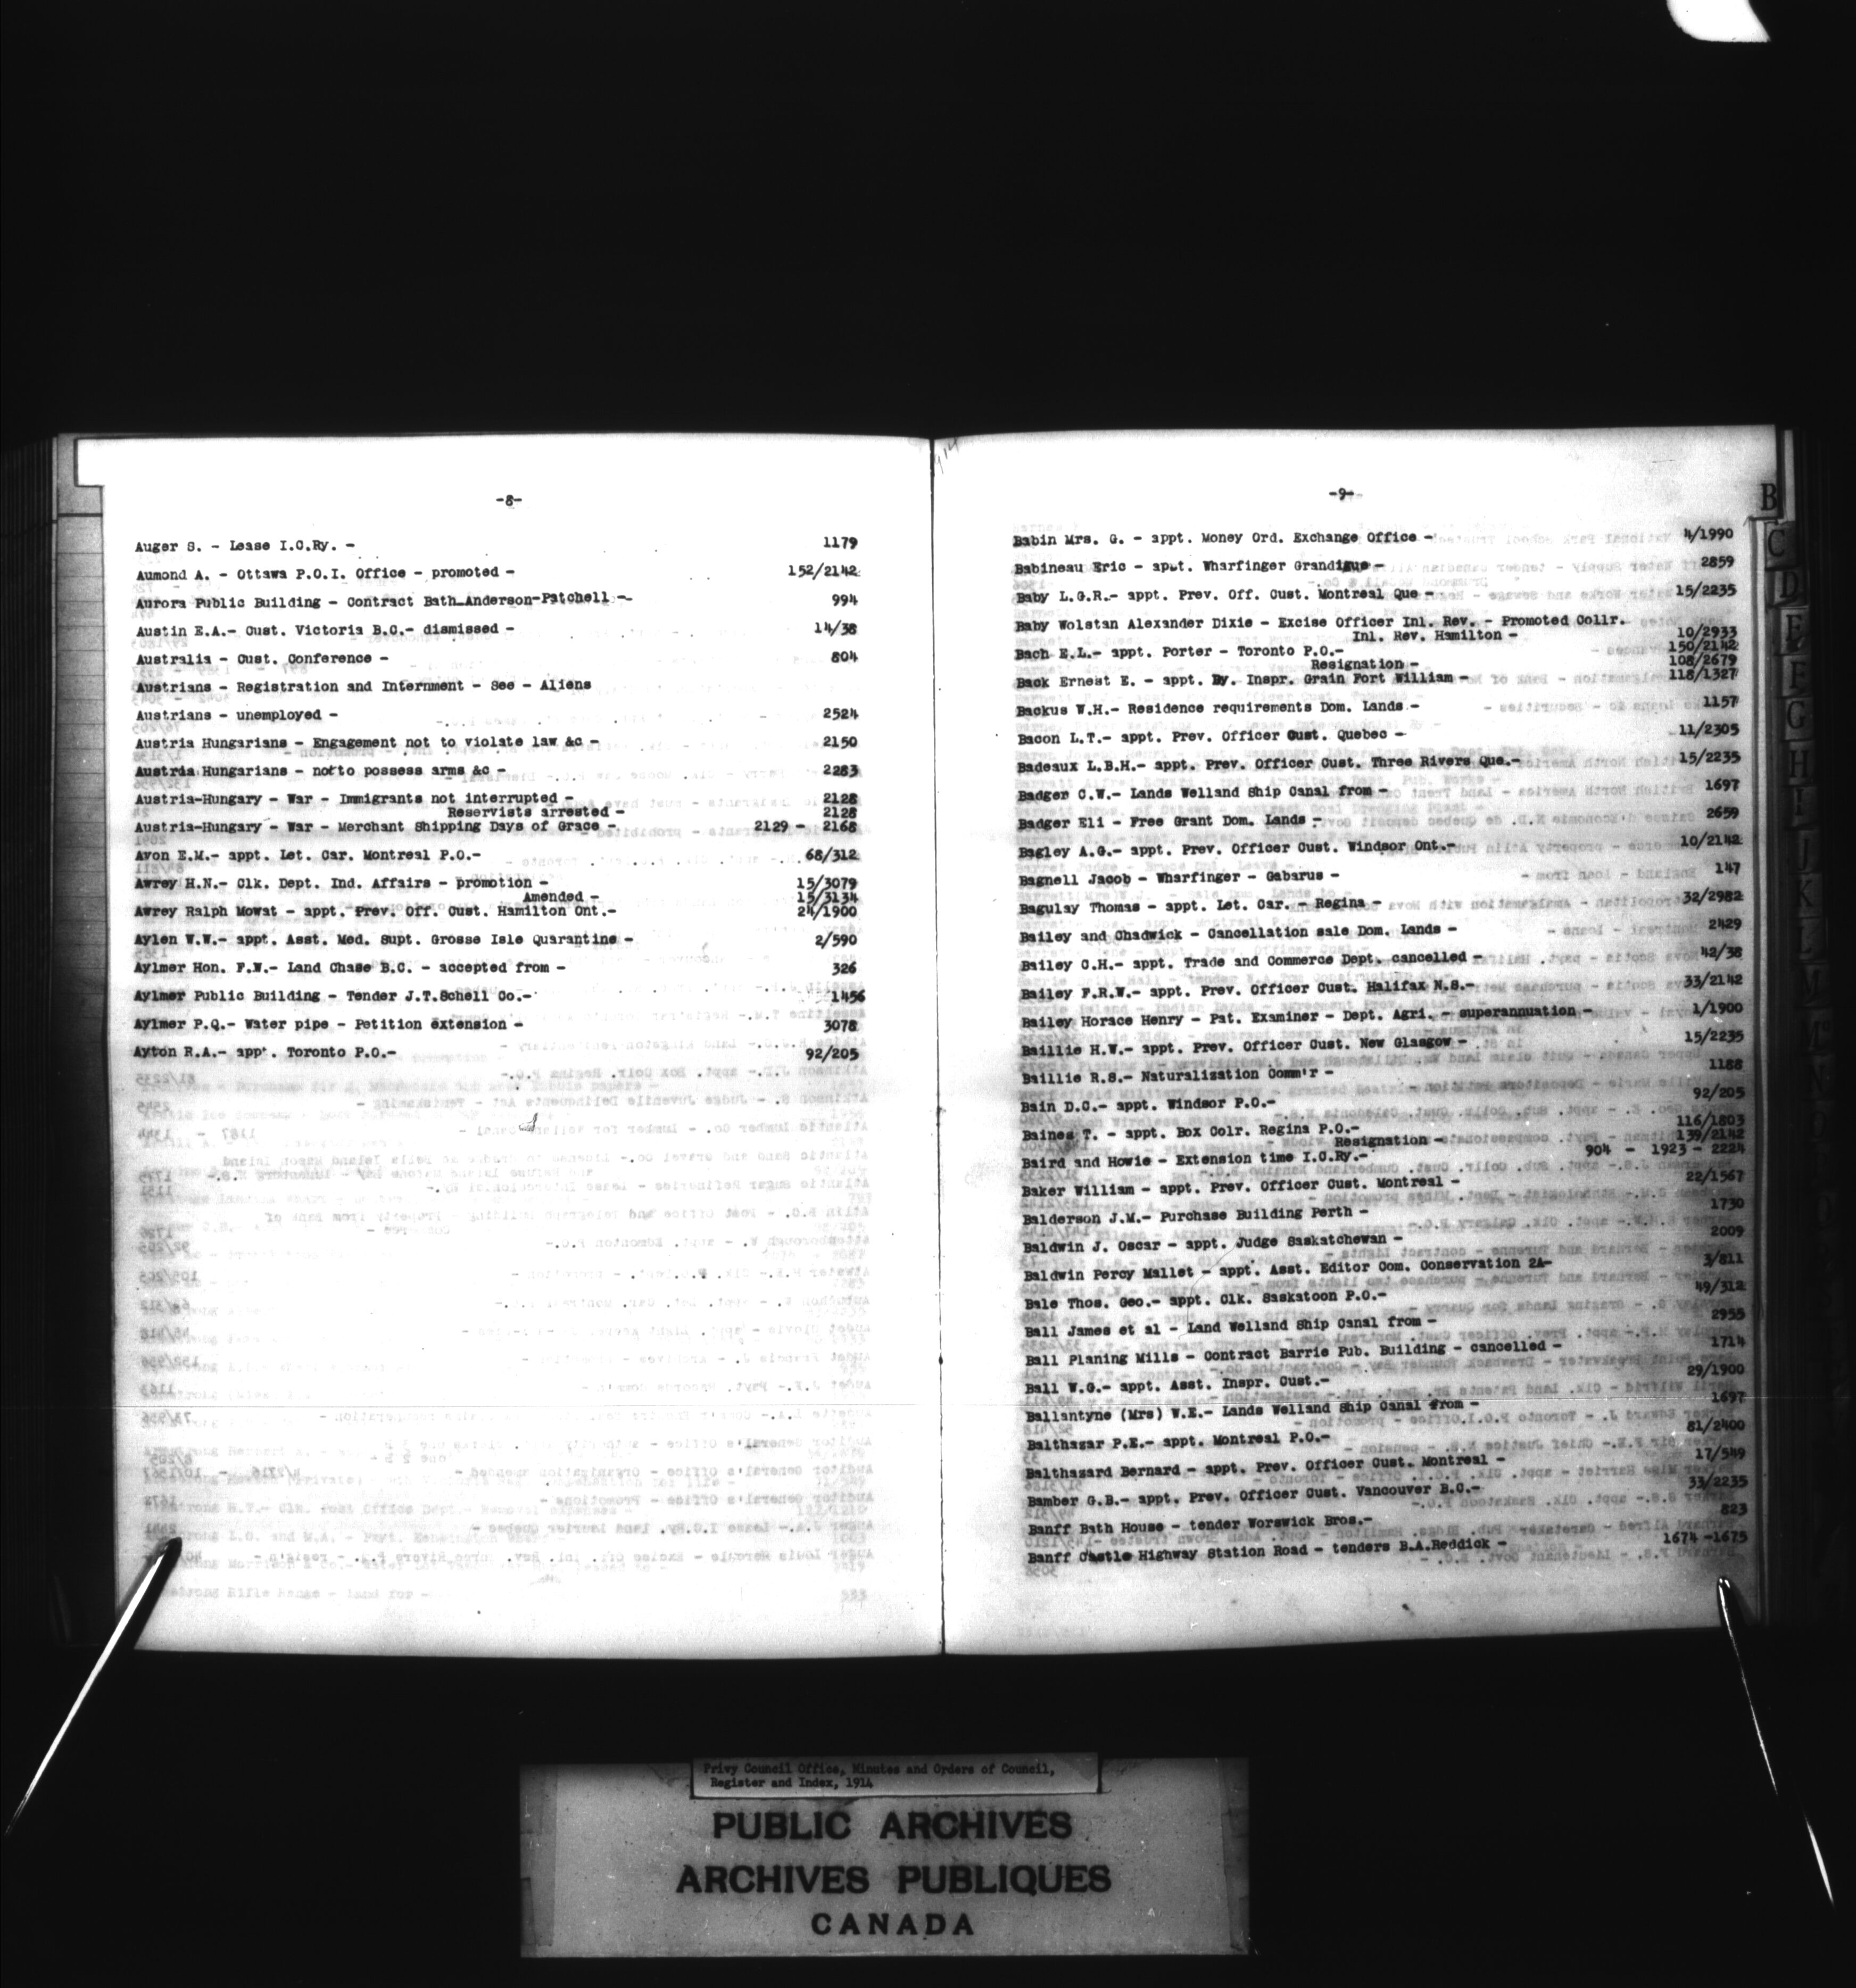 -8-
Auger S. - Lease I.C.Ry. - 1179
Aumond A. - Ottawa P.O.I. Office - promoted - 152/2142
Aurora Public Building - Contract Bath Anderson-Patchell - 994
Austin E.A.- Cust. Victoria B.C.- dismissed - 14/38
Australia - Cust. Conference - 804
Austrians - Registration and Internment - See - Aliens
Austrians - unemployed - 2524
Austria Hungarians - Engagement not to violate law &c - 2150
Austria Hungarians - not to possess arms &c - 2283
Austria-Hungary - War - Immigrants not interrupted - 2128
Reservists arrested - 2128
Austria-Hungary - War - Merchant Shipping Days of Grace - 2129 - 2168
Avon E.M.- appt. Let. Car. Montreal P.O.- 68/312
Awrey H.N.- Clk. Dept. Ind. Affairs - promotion - 15/3079
Amended - 15/3134
Awrey Ralph Mowat - appt. Prev. Off. Cust. Hamilton Ont.- 24/1900
Aylen W.W.- appt. Asst. Med. Supt. Grosse Isle Quarantine - 2/590
Aylmer Hon. F.W.- Land Chase B.C. - accepted from - 326
Aylmer Public Building - Tender J.T.Schell Co.- 1456
Aylmer P.Q.- Water pipe - Petition extension - 3078
Ayton R.A.- app'. Toronto P.O.- 92/205
-9-
Babin Mrs. G. - appt. Money Ord. Exchange Office - 4/1990
Babineau Eric - appt. Wharfinger Grandigue - 2859
Baby L.G.R.- appt. Prev. Off. Cust. Montreal Que - 15/2235
Baby Wolstan Alexander Dixie - Excise Officer Inl. Rev. - Promoted Collr.
Inl. Rev. Hamilton - 10/2933
Bach E.L.- appt. Porter - Toronto P.O.- 150/2142
Resignation - 108/2679
Back Ernest E. - appt. Dy. Inspr. Grain Fort William - 118/1327
Backus W.H.- Residence requirements Dom. Lands - 1157
Bacon L.T.- appt. Prev. Officer Cust. Quebec - 11/2305
Badeaux L.B.H.- appt. Prev. Officer Cust. Three Rivers Que.- 15/2235
Badger C.W.- Lands Welland Ship Canal from - 1697
Badger Eli - Free Grant Dom. Lands - 2659
Bagley A.G.- appt. Prev. Officer Cust. Windsor Ont.- 10/2142
Bagnell Jacob - Wharfinger - Gabarus - 147
Bagulay Thomas - appt. Let. Car. - Regina - 32/2982
Bailey and Chadwick - Cancellation sale Dom. Lands - 2429
Bailey C.H.- appt. Trade and Commerce Dept. cancelled - 42/38
Bailey F.R.W.- appt. Prev. Officer Cust. Halifax N.S.- 33/2142
Bailey Horace Henry - Pat. Examiner - Dept. Agri. - superannuation - 1/1900
Baillie H.W.- appt. Prev. Officer Cust. New Glasgow - 15/2235
Baillie R.S.- Naturalization Comm'r - 1188
Bain D.C.- appt. Windsor P.O.- 92/205
Baines T. - appt. Box Colr. Regina P.O.- 116/1803
Resignation - 139/2142
Baird and Howie - Extension time I.C.Ry.- 904 - 1923 - 2224
Baker William - appt. Prev. Officer Cust. Montreal - 22/1567
Balderson J.M.- Purchase Building Perth - 1730
Baldwin J. Oscar - appt. Judge Saskatchewan - 2009
Baldwin Percy Mallet - appt. Asst. Editor Com. Conservation 2A- 3/811
Bale Thos. Geo.- appt. Clk. Saskatoon P.O.- 49/312
Ball James et al - Land Welland Ship Canal from - 2955
Ball Planing Mills - Contract Barrie Pub. Building - cancelled - 1714
Ball W.G.- appt. Asst. Inspr. Cust.- 29/1900
Ballantyne (Mrs) W.E.- Lands Welland Ship Canal from - 1697
Balthazar P.E.- appt. Montreal P.O.- 81/2400
Balthazard Bernard - appt. Prev. Officer Cust. Montreal - 17/549
Bamber G.B.- appt. Prev. Officer Cust. Vancouver B.C.- 33/2235
Banff Bath House - tender Worswick Bros.- 823
Banff Castle Highway Station Road - tenders B.A.Reddick - 1674 -1675
B
C
D
E
F
G
H
I
J
K
L
Privy Council Office, Minutes and Orders of Council,
Register and Index, 1914
PUBLIC ARCHIVES
ARCHIVES PUBLIQUES
CANADA